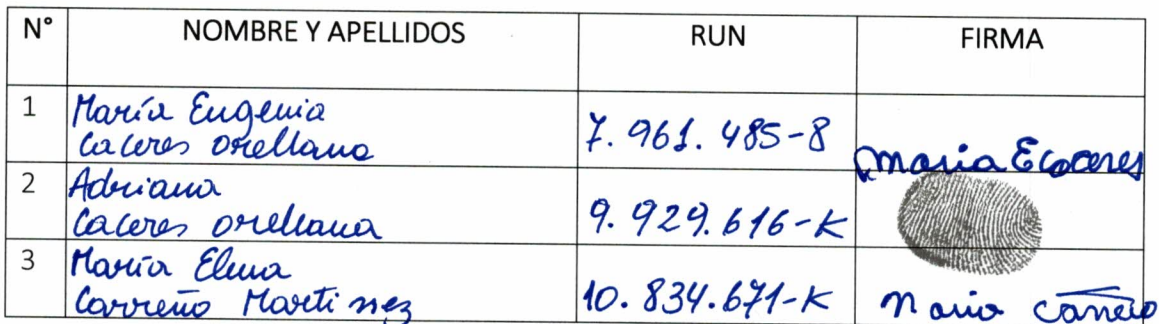 N° NOMBRE Y APELLIDOS RUN FIRMA
1 María Eugenia
Caceres Orellana 7.961.485-8 Maria E Caceres
2 Adriana
Caceres Orellana 9.929.616-K
3 María Elena
Carreño Martinez 10.834.671-K Maria Carreño